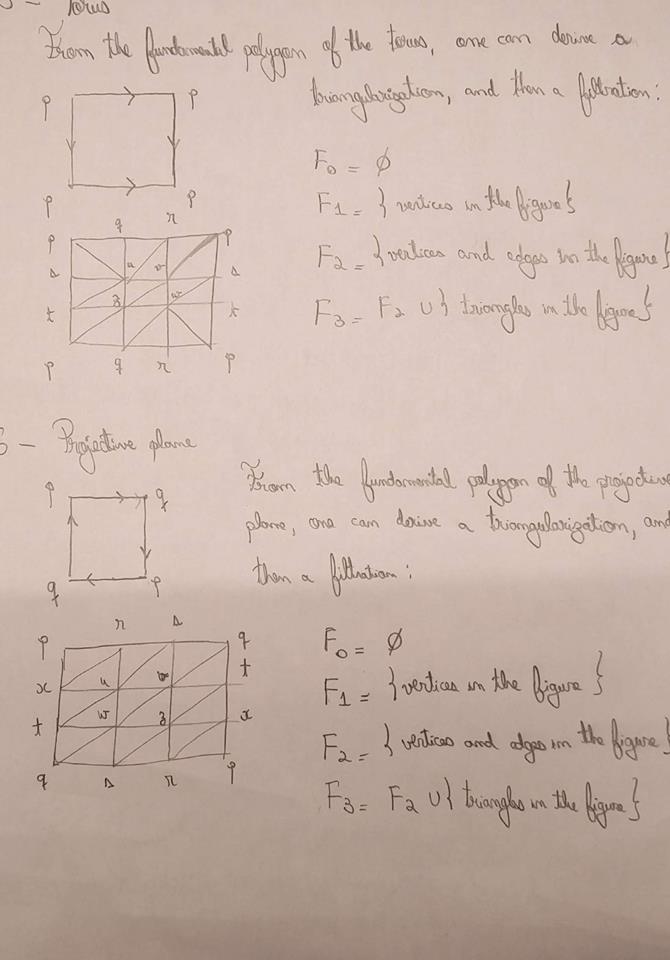 Torus
From the fundamental polygon of the torus, one can derive a
triangularization, and then a filtration:
p p
p p
F₀ = ∅
F₁ = { vertices in the figure }
F₂ = { vertices and edges in the figure }
F₃ = F₂ ∪ { triangles in the figure }
q r
p p
s u v s
t z w t
p q r p
- Projective plane
From the fundamental polygon of the projective
plane, one can derive a triangularization, and
then a filtration:
p q
q p
F₀ = ∅
F₁ = { vertices in the figure }
F₂ = { vertices and edges in the figure }
F₃ = F₂ ∪ { triangles in the figure }
r s
p q
x u v t
t w z x
q s r p